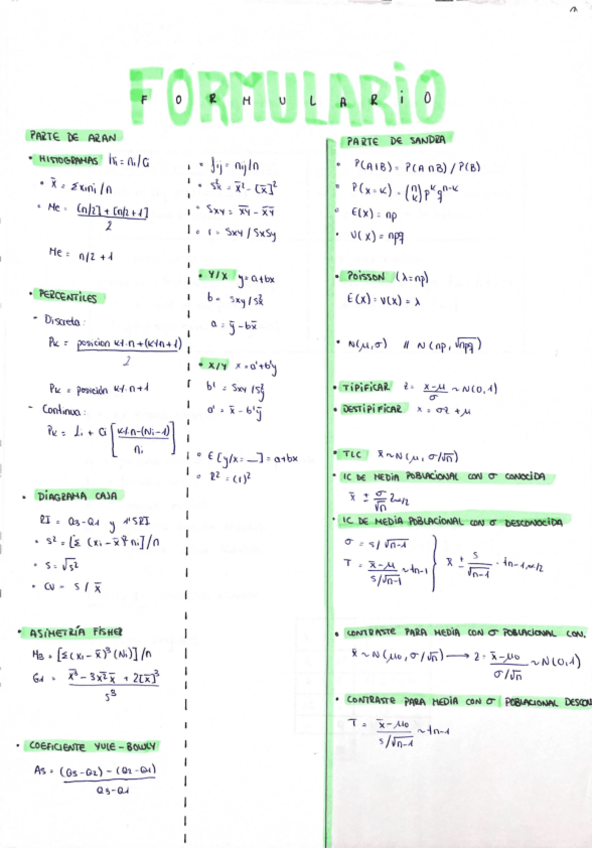 FORMULARIO
FORMULARIO
PARTE DE ARAN
• HISTOGRAMAS hi = ni/Ci
• x̄ = Σxini/n
• Me = [n/2] + [n/2+1] / 2
Me = n/2 + 1
• PERCENTILES
- Discreta:
Pk = posicion k%.n + (k%n+1) / 2
Pk = posición k%.n+1
- Continua:
Pk = Li + Ci [k%.n-(Ni-1) / ni]
• DIAGRAMA CAJA
RI = Q3-Q1 y 1'5RI
• s² = [Σ (xi - x̄)² ni]/n
• s = √s²
• CV = s / x̄
• ASIMETRÍA FISHER
M3 = [Σ(xi - x̄)³ (Ni)]/n
G1 = x̄³ - 3x̄²x̄ + 2[x̄]³ / s³
• COEFICIENTE YULE-BOWLY
As = (Q3-Q2) - (Q2-Q1) / Q3-Q1
• fij = nij/n
• s²x = x̄² - (x̄)²
• Sxy = x̄ȳ - x̄ȳ
• r = Sxy / SxSy
• Y/X y = a+bx
b = Sxy/S²x
a = ȳ - bx̄
• X/Y x = a'+b'y
b' = Sxy / S²y
a' = x̄ - b'ȳ
• E[y/x = __] = a+bx
• R² = (r)²
PARTE DE SANDRA
• P(A|B) = P(A∩B) / P(B)
• P(x=k) = (n k) p^k q^n-k
• E(x) = np
• V(x) = npq
• POISSON (λ=np)
E(x) = V(x) = λ
• N(μ,σ) // N(np, √npq)
• TIPIFICAR z = x-μ / σ ~ N(0,1)
• DESTIPIFICAR x = σz + μ
• TLC x̄ ~ N(μ, σ/√n)
• IC DE MEDIA POBLACIONAL CON σ CONOCIDA
x̄ ± σ/√n zα/2
• IC DE MEDIA POBLACIONAL CON σ DESCONOCIDA
σ = s/√n-1
T = x̄-μ / s/√n-1 ~ tn-1 } x̄ ± s/√n-1 · tn-1,α/2
• CONTRASTE PARA MEDIA CON σ POBLACIONAL CON.
x̄ ~ N(μ0, σ/√n) → z = x̄-μ0 / σ/√n ~ N(0,1)
• CONTRASTE PARA MEDIA CON σ POBLACIONAL DESCON
T = x̄-μ0 / s/√n-1 ~ tn-1